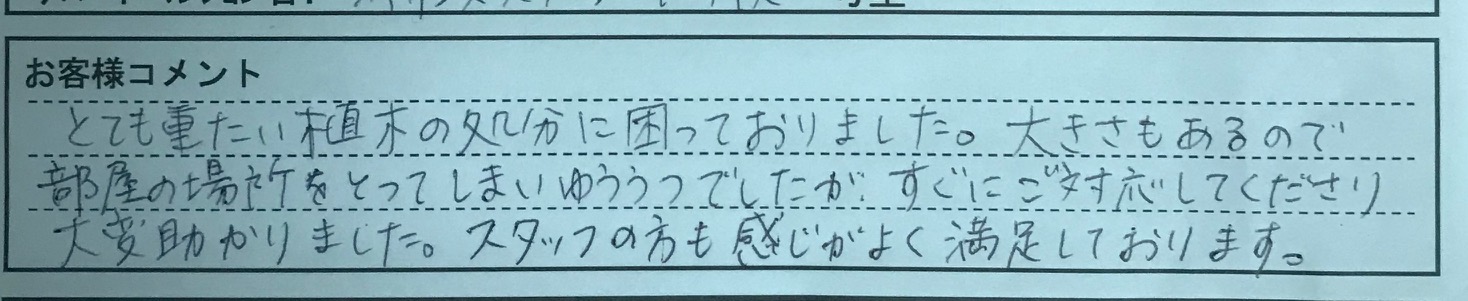 お客様コメント
とても重たい植木の処分に困っておりました。大きさもあるので
部屋の場所をとってしまいゆううつでしたが、すぐにご対応してくださり
大変助かりました。スタッフの方も感じがよく満足しております。